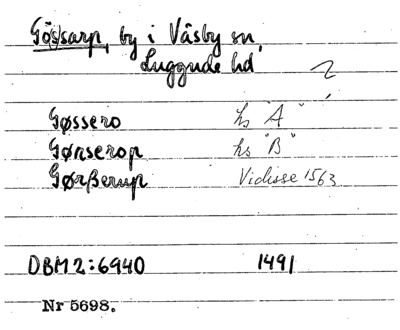 Gössarp, by i Väsby sn,
Luggude hd
2
Gøssero hs "A"
Gønserop hs "B"
Gørßerup Vidisse 1563
DBM 2:6940 1491
Nr 5698.